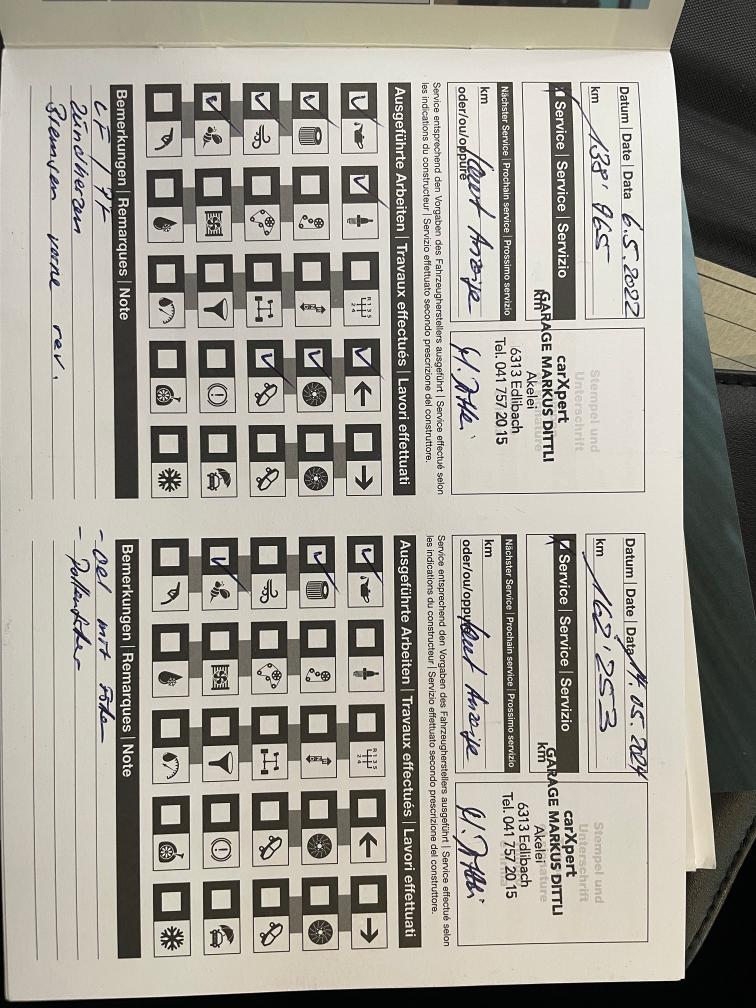 Datum | Date | Data 6.5.2022
km 138'965
Service | Service | Servizio
Nächster Service | Prochain service | Prossimo servizio
km
km
oder/ou/oppure laut Anzeige
Stempel und
Unterschrift
carXpert
GARAGE MARKUS DITTLI
Akelei
6313 Edlibach
Tel. 041 757 20 15
Service entsprechend den Vorgaben des Fahrzeugherstellers ausgeführt | Service effectué selon
les indications du constructeur | Servizio effettuato secondo prescrizione del costruttore.
Ausgeführte Arbeiten | Travaux effectués | Lavori effettuati
R 1 3 5
2 4
Bemerkungen | Remarques | Note
Zündkerzen
Bremsen vorne rev.
Datum | Date | Data 14.05.2024
km 162'253
Service | Service | Servizio
Nächster Service | Prochain service | Prossimo servizio
km
km
oder/ou/oppure laut Anzeige
Stempel und
Unterschrift
carXpert
GARAGE MARKUS DITTLI
Akelei
6313 Edlibach
Tel. 041 757 20 15
Service entsprechend den Vorgaben des Fahrzeugherstellers ausgeführt | Service effectué selon
les indications du constructeur | Servizio effettuato secondo prescrizione del costruttore.
Ausgeführte Arbeiten | Travaux effectués | Lavori effettuati
R 1 3 5
2 4
Bemerkungen | Remarques | Note
- Oel mit Filter
- Pollenfilter